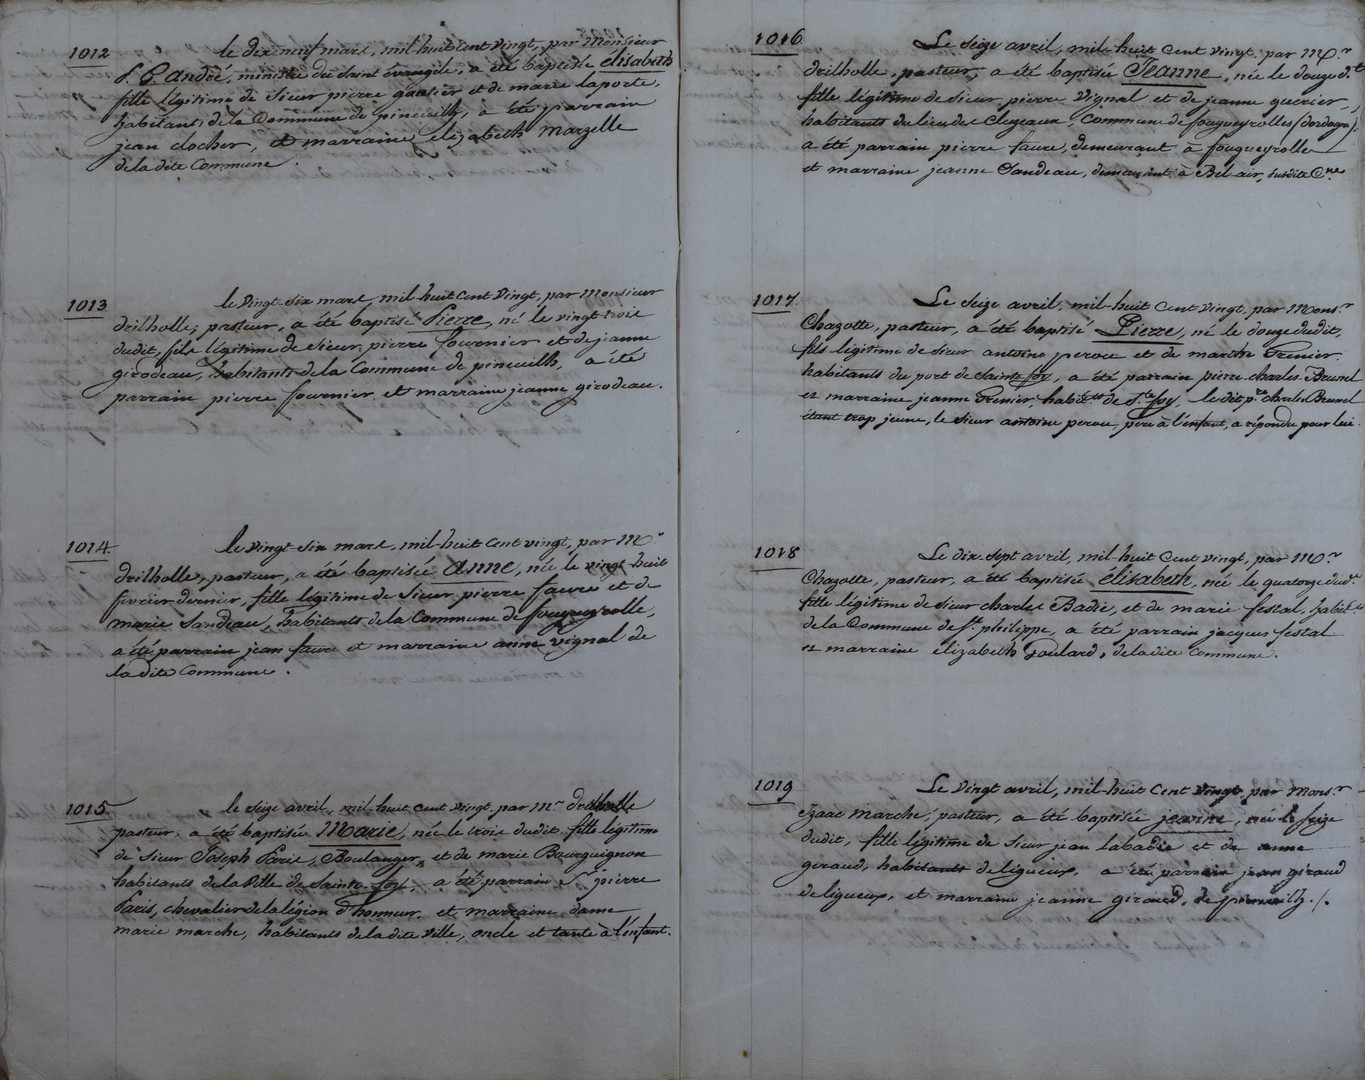 1012
le dix neuf mars, mil-huit Cent vingt, par Monsieur
J. P. André, ministre du saint évangile, a été baptisée élisabeth
fille légitime de Sieur pierre gautier et de marie laporte,
habitants de la Commune de pineuilh, a été parrain
jean clocher, et marraine elizabeth marzelle
de la dite Commune.
1013
le vingt-six mars, mil-huit Cent Vingt, par Monsieur
drilholle, pasteur, a été baptisé Pierre, né le vingt trois
dudit, fils légitime de Sieur pierre fournier et de jeanne
girodeau, habitants de la Commune de pineuilh, a été
parrain pierre fournier, et marraine jeanne girodeau.
1014
le vingt six mars, mil-huit Cent vingt, par Mr.
drilholle, pasteur, a été baptisée anne, née le vingt huit
février dernier, fille légitime de Sieur pierre faure et de
marie Sandeau, habitants de la Commune de fougueyrolle,
a été parrain jean faure et marraine anne vignal de
la dite Commune.
1015
le seize avril, mil-huit Cent vingt, par mr drilholle
pasteur, a été baptisée Marie, née le trois dudit, fille légitime
de Sieur Joseph Paris, Boulanger, et de marie Bourguignon
habitants de la Ville de Sainte-foy, a été parrain Sr. pierre
Paris, chevalier de la légion d'honneur, et marraine dame
marie marche, habitants de la dite Ville, oncle et tante à l'enfant.
1016
Le Seize avril, mil-huit Cent vingt par Mr.
drilholle, pasteur, a été baptisée Jeanne, née le douze dt.
fille légitime de Sieur pierre Vignal et de jeanne querier,
habitants du lieu des Cluzeaux, Commune de fougueyrolles (dordogne).
a été parrain pierre faure, demeurant à fougueyrolle
et marraine jeanne Sandeau, demeurant à Bel-air, susdite Cne
1017.
Le Seize avril, mil-huit Cent vingt, par Monsr.
Chazotte, pasteur, a été baptisé Pierre, né le douze dudit,
fils légitime de Sieur antoine perou et de marthe Grenier
habitants du port de Sainte foy, a été parrain pierre charles Brunel
et marraine jeanne Grenier, habitts. de Ste. foy. le dit p. charles Brunel
étant trop jeune, le Sieur antoine perou, père à l'enfant, a répondu pour lui.
1018
Le dix sept avril, mil-huit Cent vingt, par Mr.
Chazotte, pasteur, a été baptisée élisabeth, née le quatorze dudt.
fille légitime de Sieur Charles Badie, et de marie festal, habitts
de la Commune de St. philippe, a été parrain jacques festal
et marraine élizabeth Goulard, de la dite Commune.
1019
Le Vingt avril, mil-huit Cent vingt, par Monsr.
Izaac marche, pasteur, a été baptisée jeanne, née le seize
dudit, fille légitime de Sieur jean labadie et de anne
giraud, habitants de ligueux, a été parrain jean giraud
de ligueux, et marraine jeanne giraud, de pineuilh./.